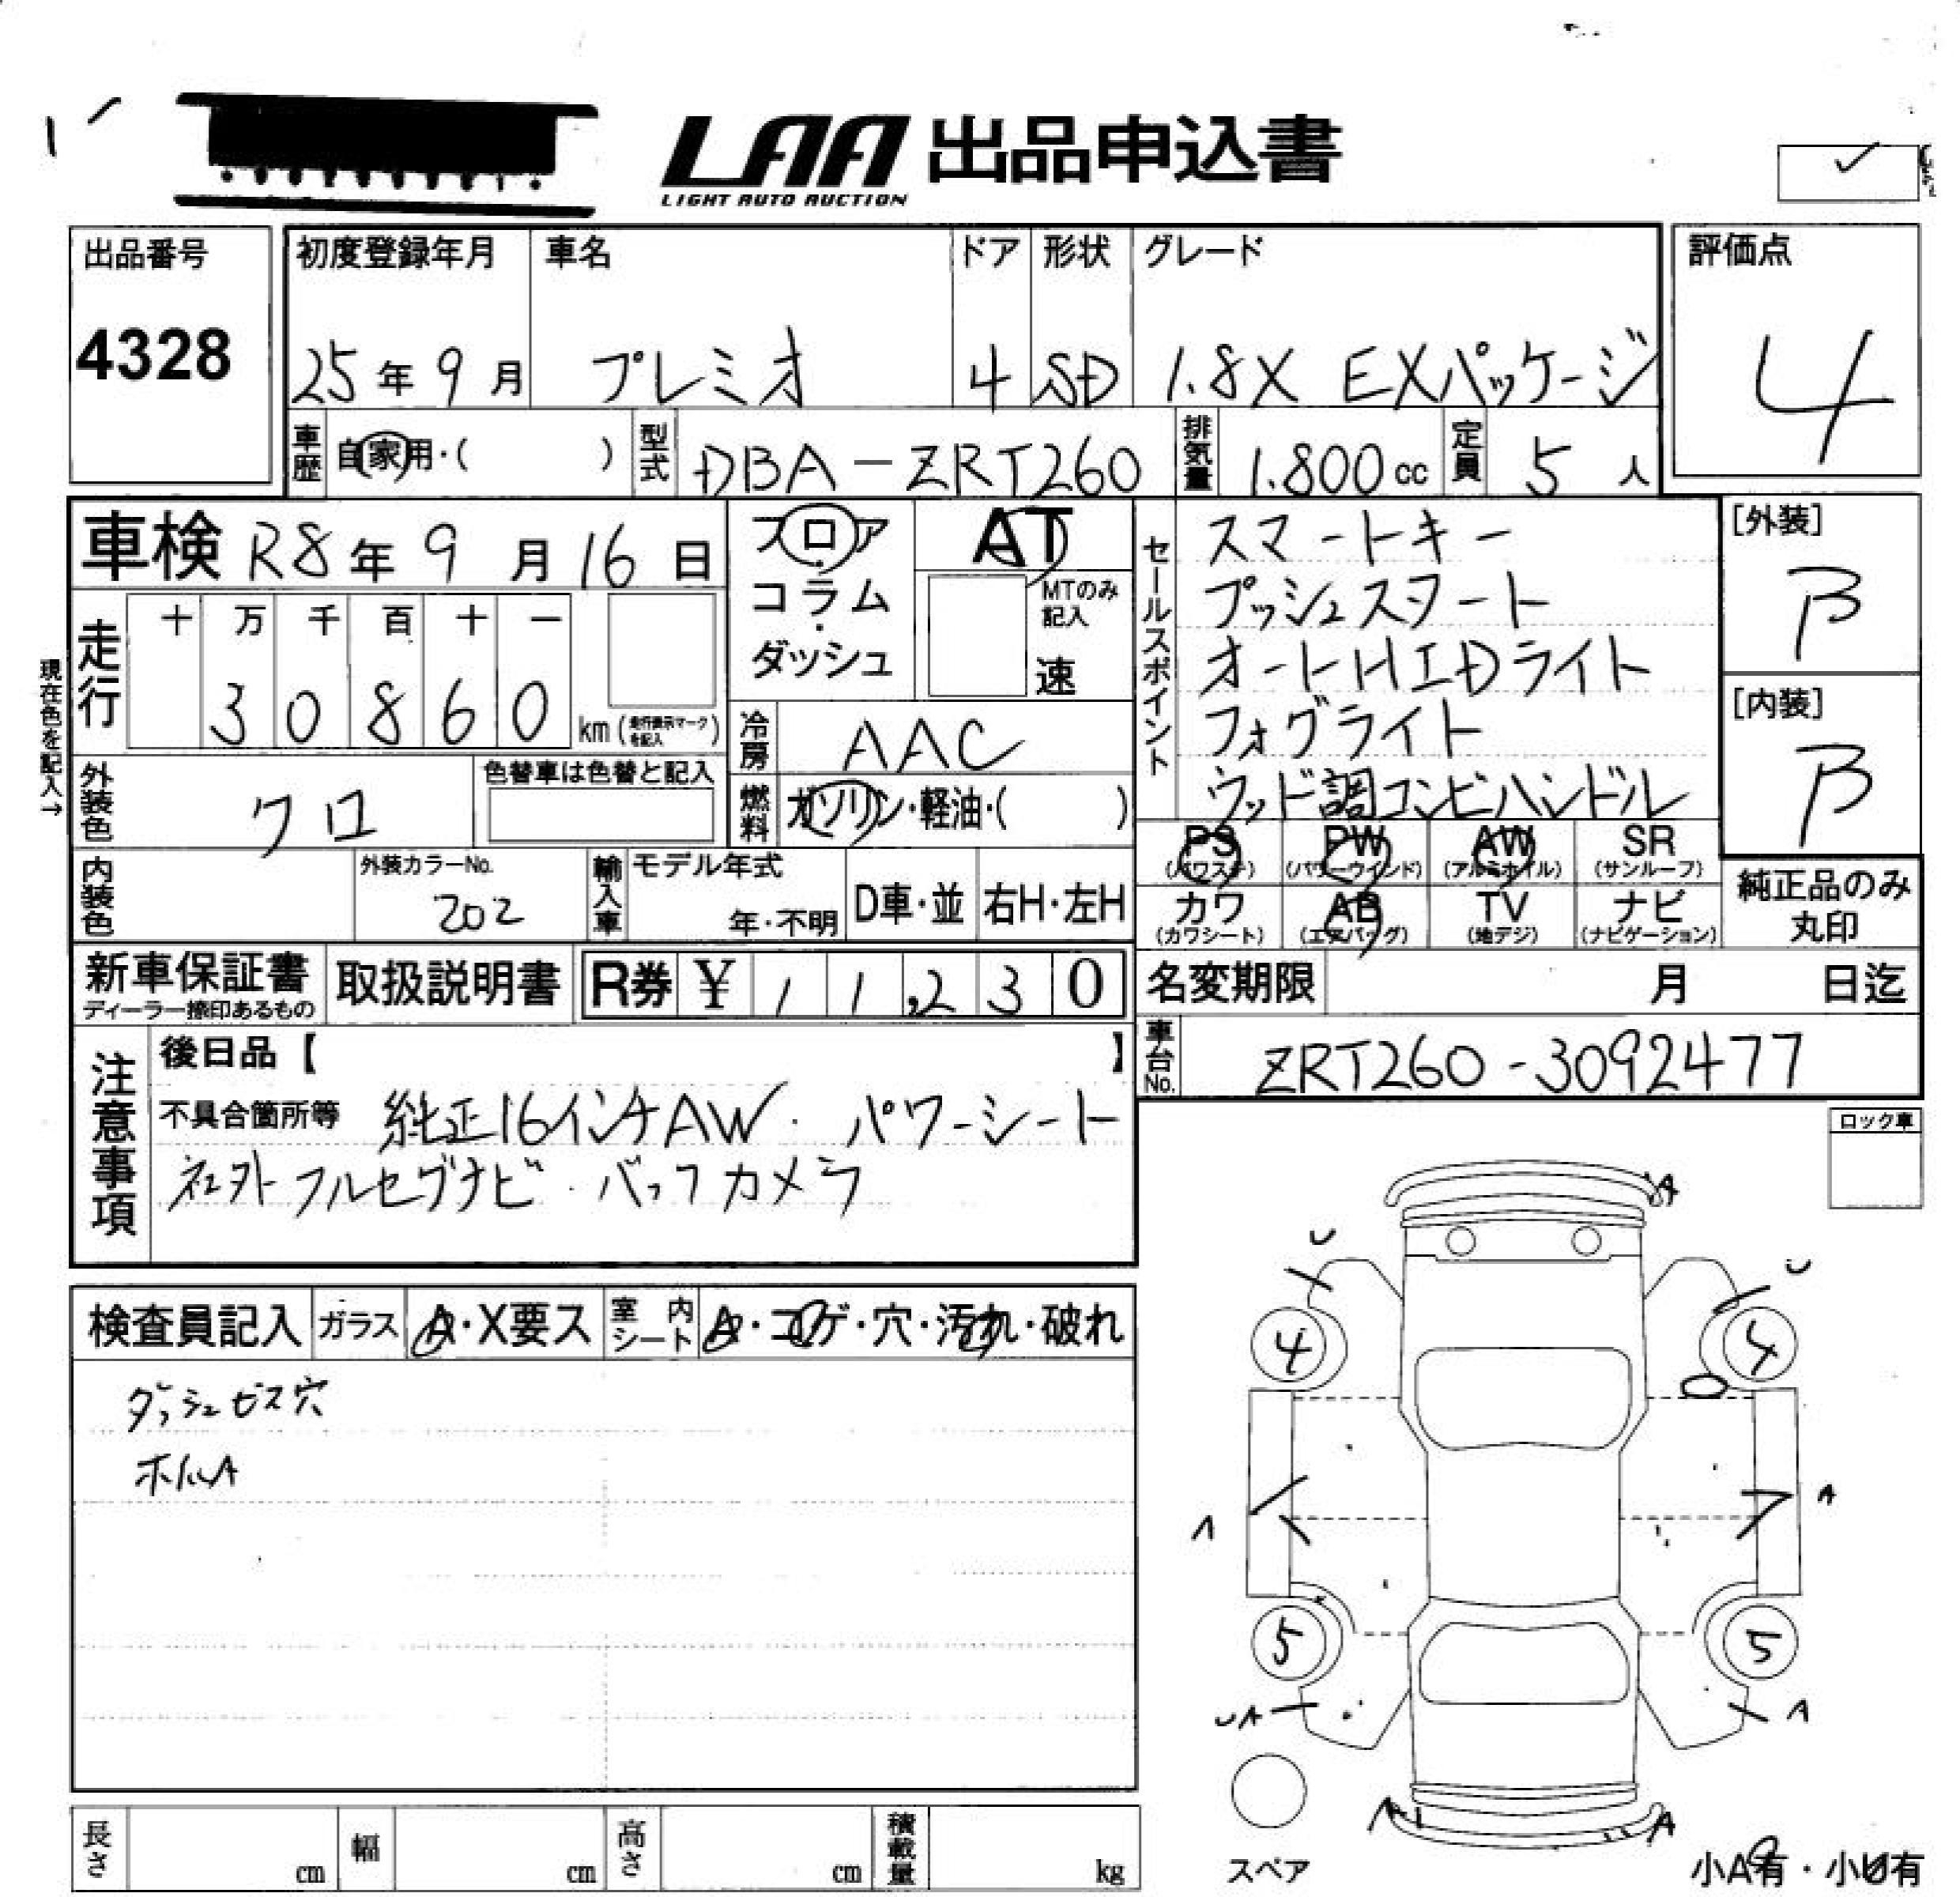 LAA 出品申込書
LIGHT AUTO AUCTION
出品番号
4328
初度登録年月 車名 ドア 形状 グレード
25年9月 プレミオ 4 SD 1.8X EXパッケージ
評価点
4
車歴 自家用・( ) 型式 DBA-ZRT260 排気量 1.800cc 定員 5人
車検 R8年9月16日
フロア・コラム・ダッシュ
AT
MTのみ記入
速
セールスポイント
スマートキー
プッシュスタート
オートHIDライト
フォグライト
ウッド調コンビハンドル
[外装]
B
[内装]
B
現在色を記入→
走行 十 万 千 百 十 一
3 0 8 6 0 km (走行表示マークを記入)
冷房 AAC
外装色 クロ 色替車は色替と記入
燃料 ガソリン・軽油・( )
PS (パワステ) PW (パワーウインド) AW (アルミホイル) SR (サンルーフ)
カワ (カワシート) AB (エアバッグ) TV (地デジ) ナビ (ナビゲーション)
純正品のみ丸印
内装色 外装カラーNo. 202 輸入車 モデル年式 年・不明 D車・並 右H・左H
新車保証書 ディーラー捺印あるもの 取扱説明書 R券 ¥ 11,230
名変期限 月 日迄
車台No. ZRT260-3092477
注意事項
後日品【 】
不具合箇所等 純正16インチAW・パワーシート
社外フルセグナビ・バックカメラ
ロック車
検査員記入 ガラス A・X要ス 室内シート A・コゲ・穴・汚れ・破れ
ダッシュビス穴
ホイルA
A
U U
4 4
A A
5 5
UA A
A A
スペア
小A有・小U有
長さ cm 幅 cm 高さ cm 積載量 kg